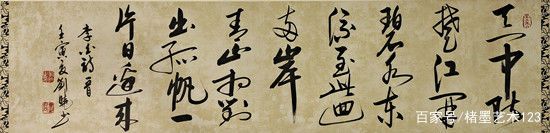 天门中断
楚江開
碧水东
流至此迴
两岸
青山相對
出孤帆一
片日邊来
李白詩一首
壬寅夏劉
百家号/楮墨艺术123